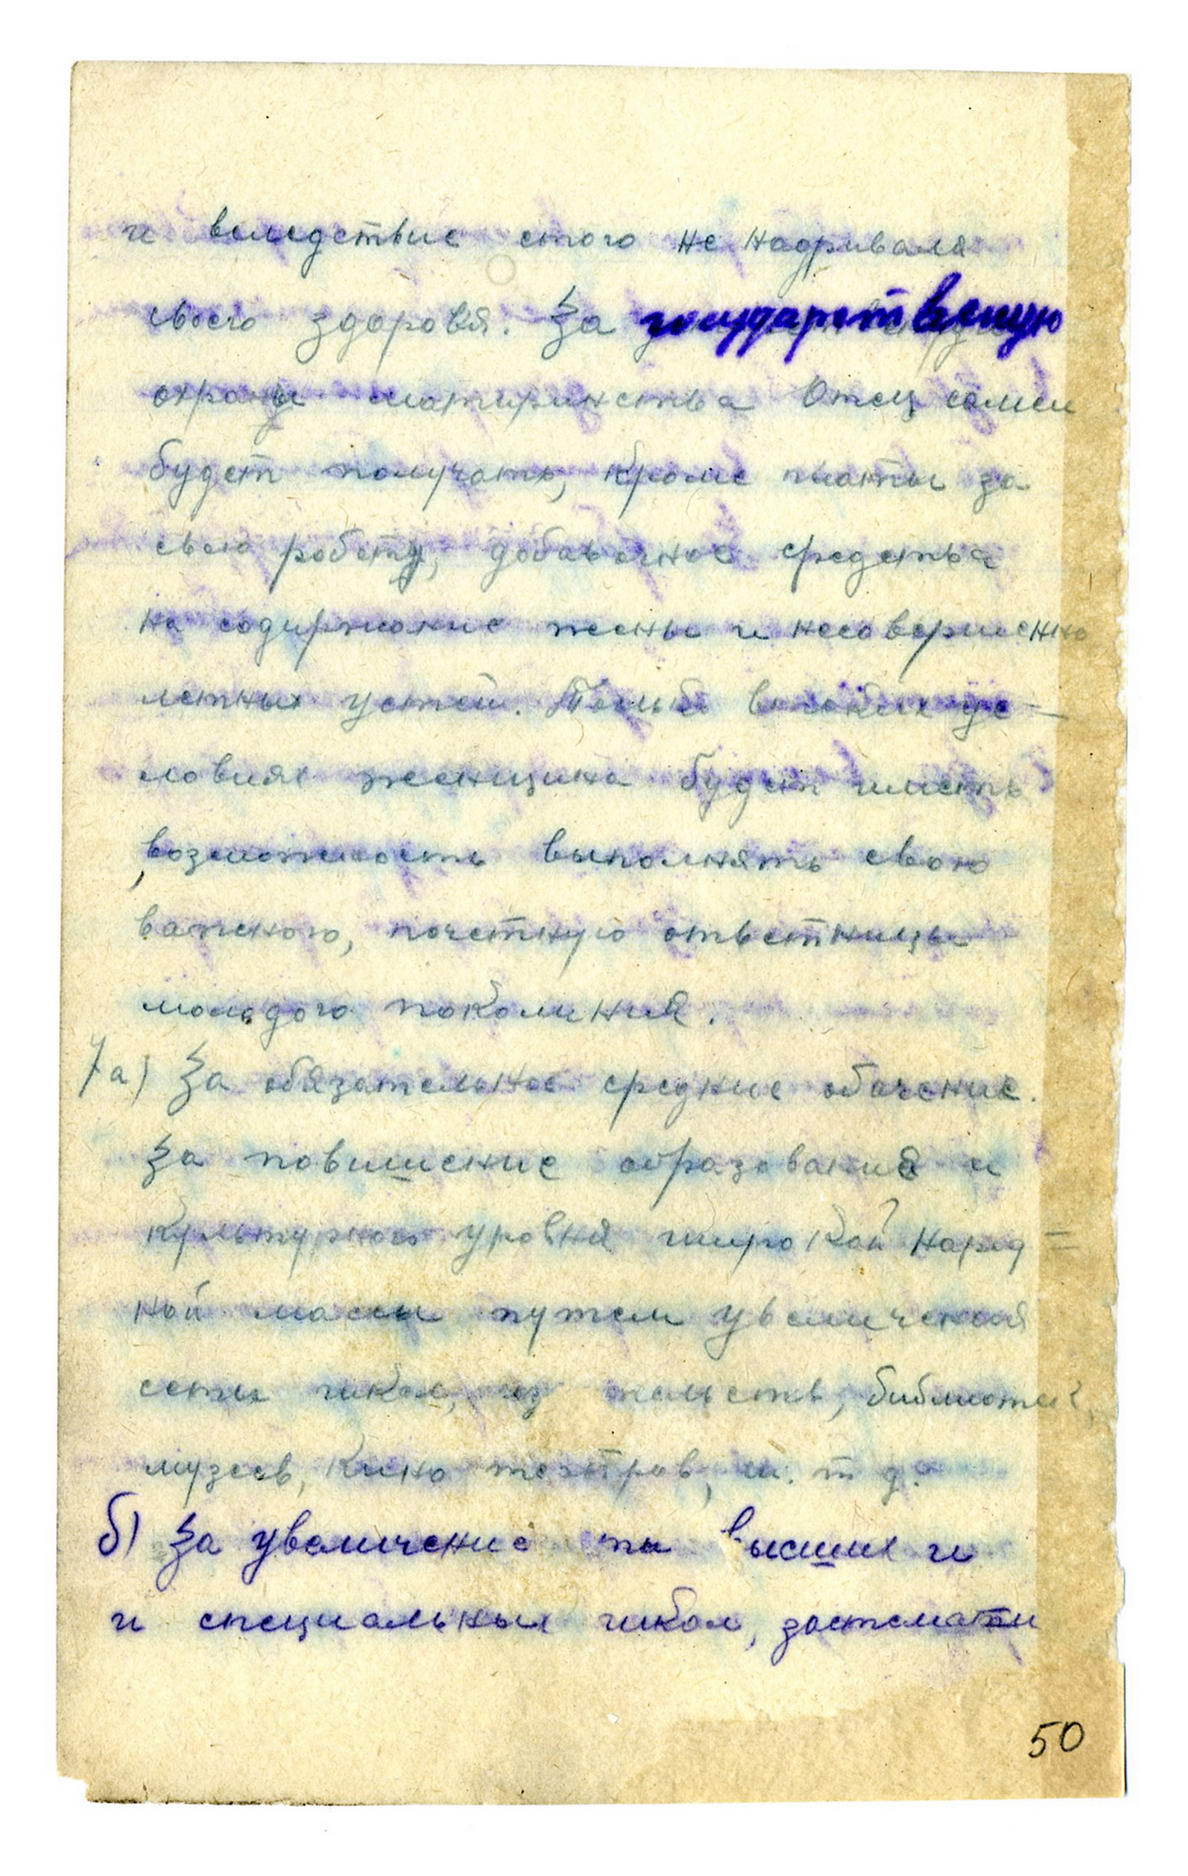 и вследствие етого не надривала
своего здоровя. За государственую
охрану материнства Отец семьи
будет получать, кроме платы за
свою роботу, добавочные средства
на содиржание жены и несовершенно
летных детей. Только в таких ус–
ловиях женщина будет иметь
возможность выполнять свою
важного, почетную ответницы
молодого поколиния.
7 а) За обязательное средние обучение.
За повишение образования и
культурного уровня широкой народ=
ной массы путем увеличения
сети школ, из тельств, библиотек,
музеев, кино театров, и. т д.
б) За увеличение высших и
и специальных школ,
50